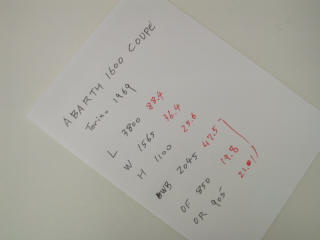 ABARTH 1600 COUPÉ
Torino 1969
L 3800 88.4
W 1565 36.4
H 1100 25.6
WB 2045 47.5
OF 850 19.8
OR 905 21.0